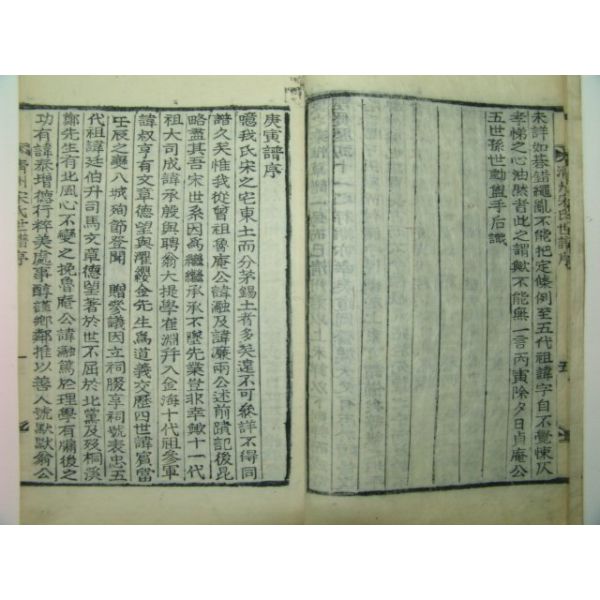 未詳如碁錯繩亂不能把定條例至五代祖諱字自不覺悚仄
孝悌之心油然者此之謂歟不能無一言丙寅除夕日貞庵公
五世孫世勛盥手后識
淸州宋氏世譜序
五
庚寅譜序
噫我氏宋之宅東土而分茅錫土者多矣遠不可終詳不得同
譜久矣惟我從曾祖魯庵公諱融及諱廉兩公述前蹟記後昆
略盡其吾宋世系因爲繼繼承承不墜先業豈非幸歟十一代
祖大司成諱承殷與聘翁大提學崔淵幷入金海十代祖參軍
諱叔亨有文章德望與濯纓金先生爲道義交歷四世諱賓當
壬辰之變八城殉節登聞 贈參議因立祠腏享祠號表忠五
代祖諱廷伯升司馬文章德望著於世不屈於北黨及歿桐溪
鄭先生有北風心不變之挽魯庵公諱融篤於理學有牖後之
功有諱泰增德行粹美處事醇謹鄕鄰推以善人號默默翁公
淸州宋氏世譜序